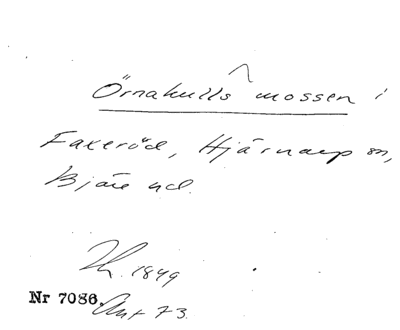 Örnakulls mossen i
Faxeröd, Hjärnarp sn,
Bjäre hd.
Th. 1849
Nr 7086. Ant 73.